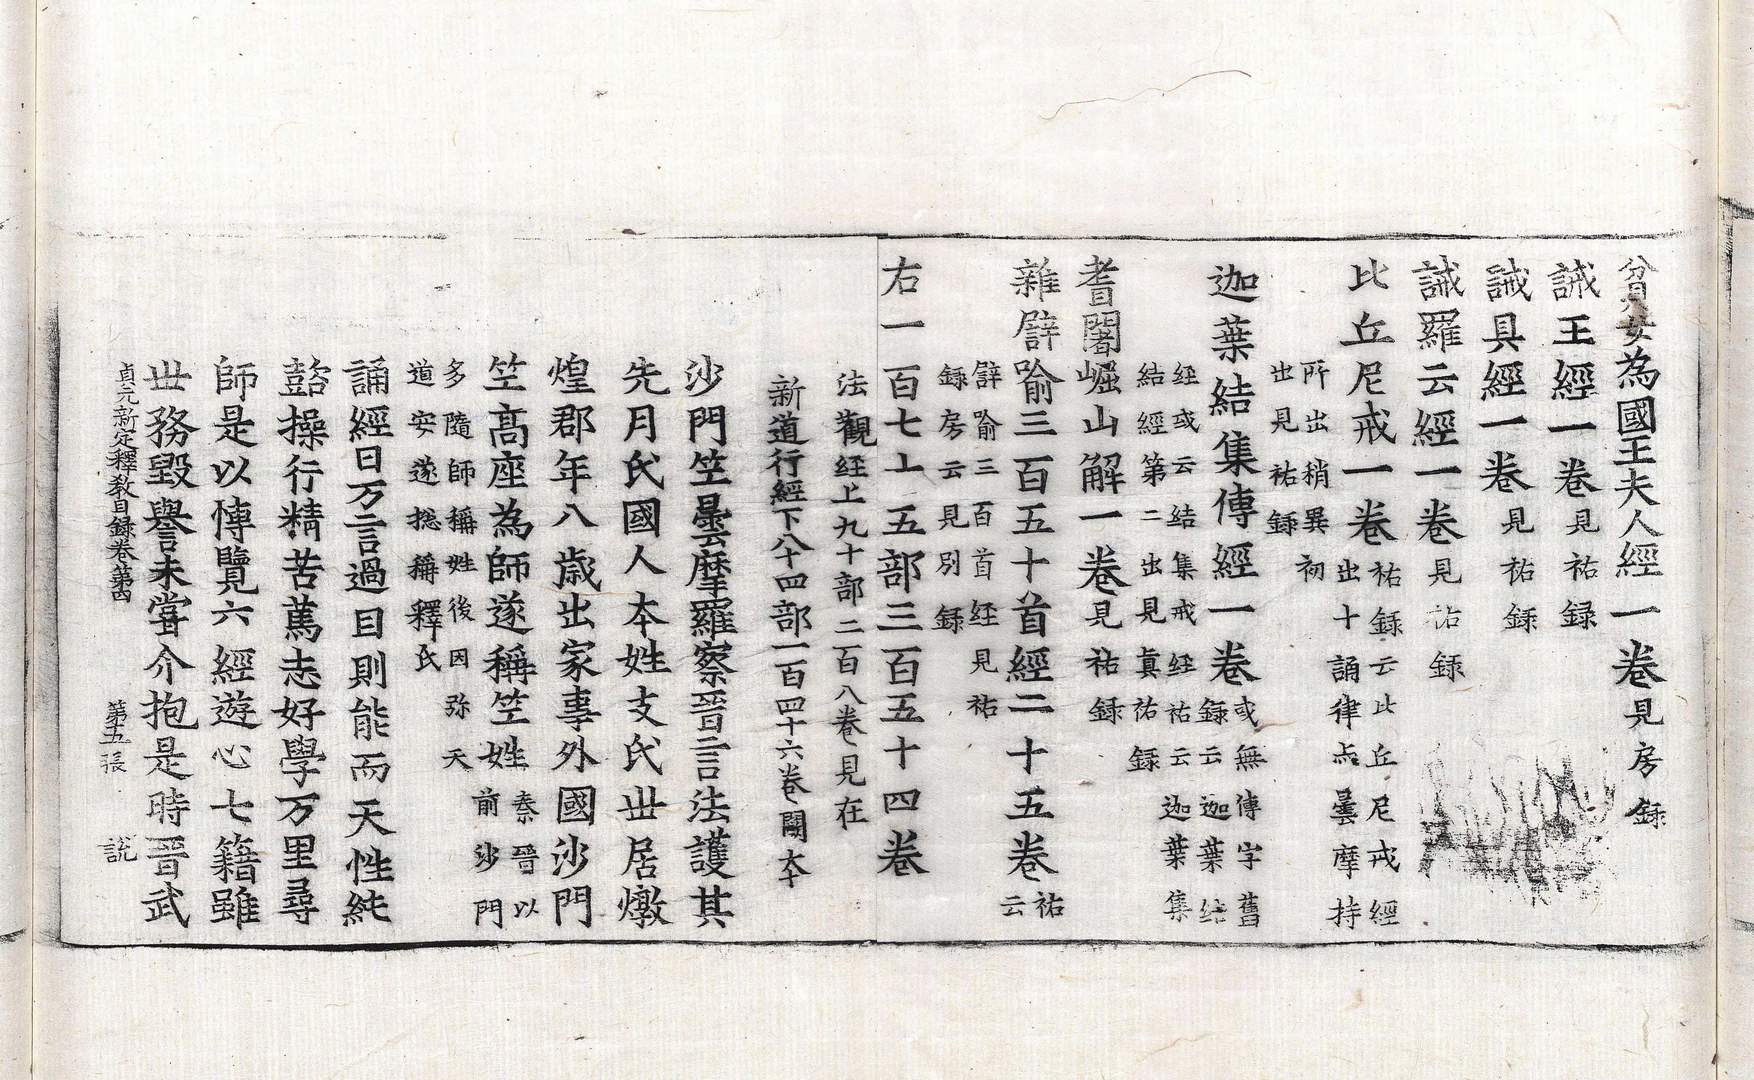 貧女為國王夫人經一卷見房録
誡王經一卷見祐録
誡具經一卷見祐録
誡羅云經一卷見祐録
比丘尼戒一卷祐録云此丘尼戒經
出十誦律点曇摩持
所出稍異初
出見祐録
迦葉結集傳經一卷或無傳字舊
録云迦葉结
经或云结集戒经祐云迦葉集
結經第二出見真祐録
耆闍崛山解一卷見祐録
雜譬喻三百五十首經二十五卷祐
云
譬喻三百首经見祐
録房云見別録
右一百七十五部三百五十四卷
法觀经上九十部二百八卷見在
新道行經下八十四部一百四十六卷闕本
沙門竺曇摩羅察晉言法護其
先月氏國人本姓支氏世居燉
煌郡年八歲出家事外國沙門
竺高座為師遂稱竺姓秦晉以
前沙門
多隨師稱姓後因弥天
道安遂摠稱釋氏
誦經日万言過目則能而天性純
懿操行精苦篤志好學万里尋
師是以博覽六經遊心七籍雖
世務毀譽未甞介抱是時晉武
貞元新定釋教目録卷第四 第十五張 說